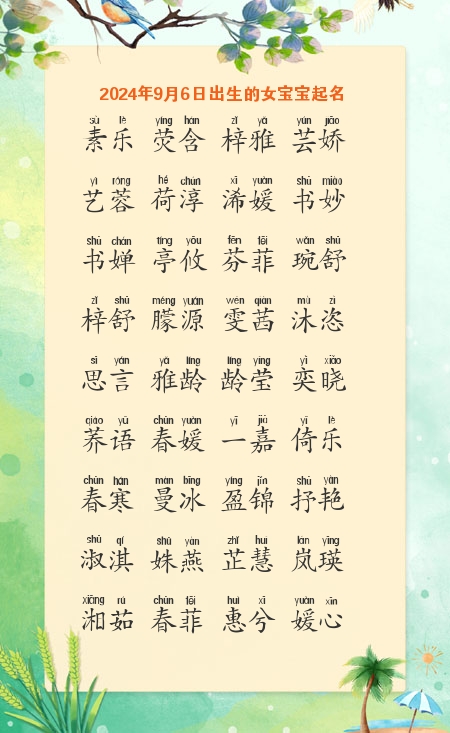 2024年9月6日出生的女宝宝起名
sù lè yíng hán zǐ yǎ yún jiāo
素乐 荧含 梓雅 芸娇
yì róng hé chún xī yuàn shū miào
艺蓉 荷淳 浠媛 书妙
shū chán tíng yōu fēn fēi wǎn shū
书婵 亭攸 芬菲 琬舒
zǐ shū méng yuán wén qiàn mù zì
梓舒 朦源 雯茜 沐恣
sī yán yǎ líng líng yíng yì xiǎo
思言 雅龄 龄莹 奕晓
qiáo yǔ chūn yuàn yī jiā yǐ lè
荞语 春媛 一嘉 倚乐
chūn hán màn bīng yíng jǐn shū yàn
春寒 曼冰 盈锦 抒艳
shū qí shū yàn zhǐ huì lán yīng
淑淇 姝燕 芷慧 岚瑛
xiāng rú chūn fēi huì xī yuàn xīn
湘茹 春菲 惠兮 媛心